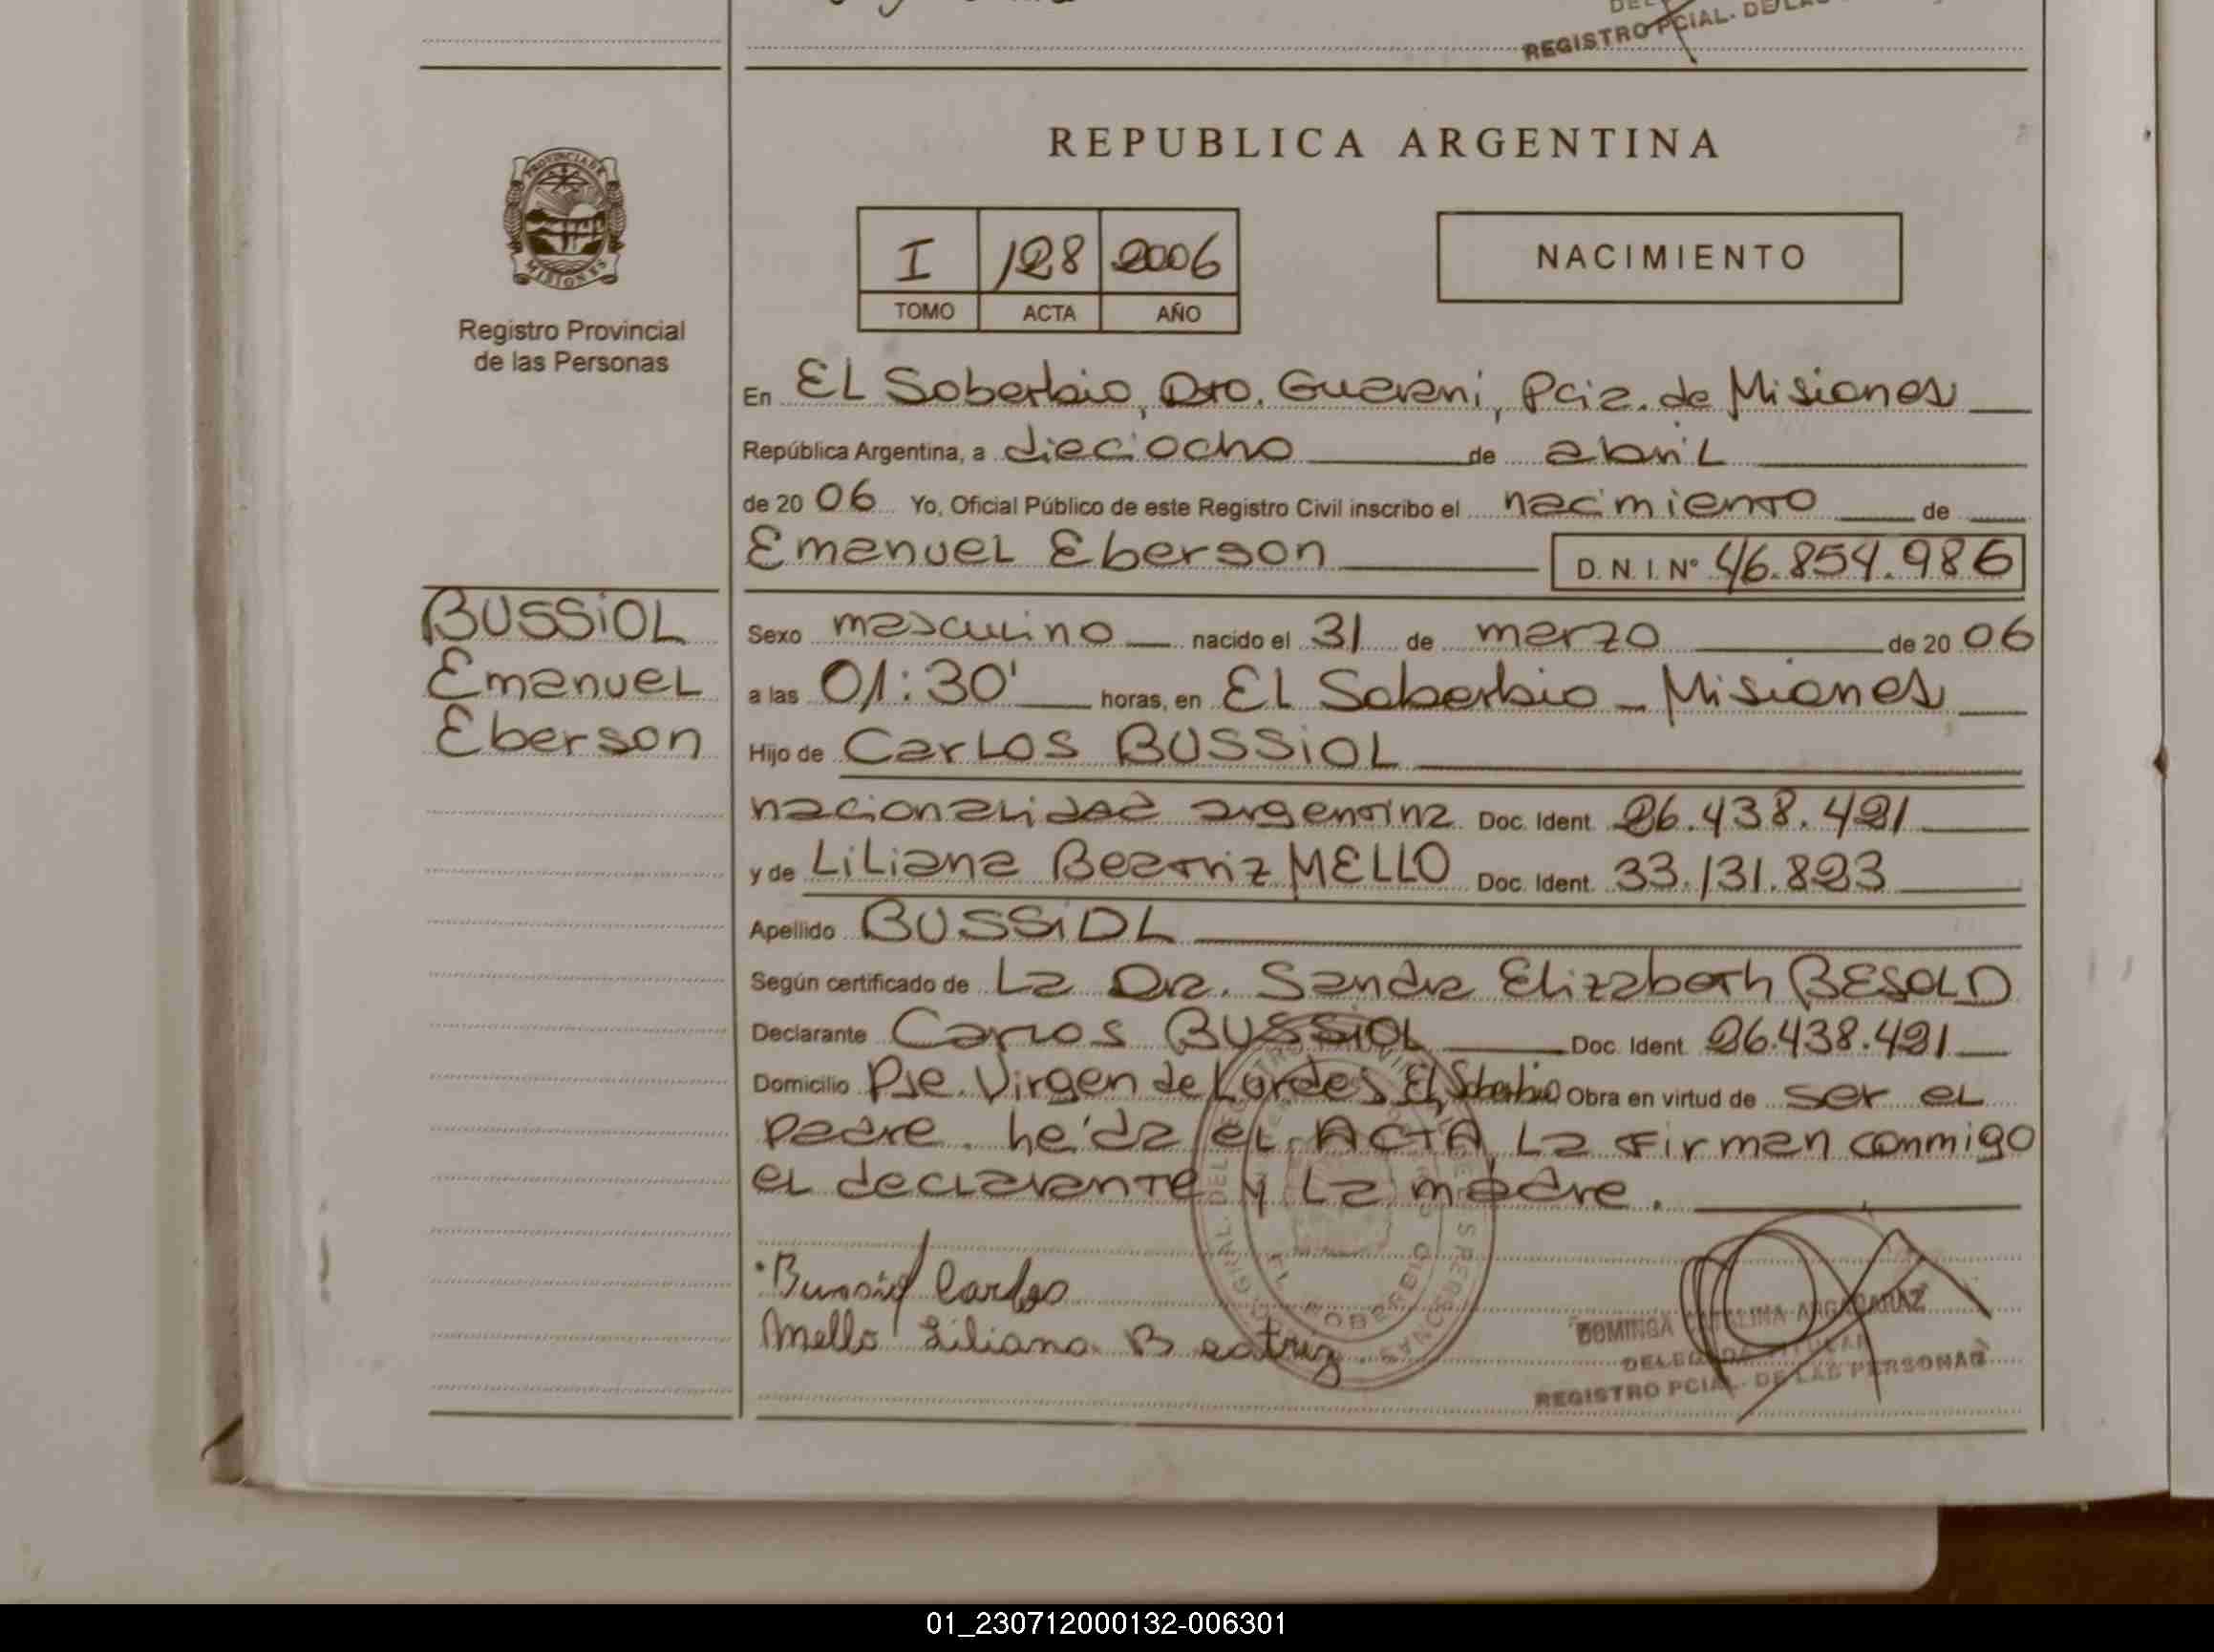 REGISTRO PCIAL. DE LAS
REPUBLICA ARGENTINA
PROVINCIA DE
MISIONES
Registro Provincial
de las Personas
I 128 2006
TOMO ACTA AÑO
NACIMIENTO
En EL Soberbio, Dto. Guarani, Pcia. de Misiones
República Argentina, a dieciocho de abril
de 20 06 Yo, Oficial Público de este Registro Civil inscribo el nacimiento de
Emanuel Eberson D. N. I. N° 46.854.986
BUSSIOL
Emanuel
Eberson
Sexo masculino nacido el 31 de marzo de 20 06
a las 01:30' horas, en EL Soberbio - Misiones
Hijo de Carlos BUSSIOL
nacionalidad argentina Doc. Ident. 26.438.421
y de Liliana Beatriz MELLO Doc. Ident. 33.131.823
Apellido BUSSIOL
Según certificado de La Dra. Sandra Elizabeth BESOLD
Declarante Carlos BUSSIOL Doc. Ident. 26.438.421
Domicilio Pje. Virgen de Lordes, El Soberbio Obra en virtud de ser el
padre. Leída el ACTA, La firman conmigo
el declarante y La madre.
Bussiol Carlos
Mello Liliana Beatriz
EL SOBERBIO
DOMINGA CATALINA ARGAÑARAZ
DELEGADA TITULAR
REGISTRO PCIAL. DE LAS PERSONAS
01_230712000132-006301